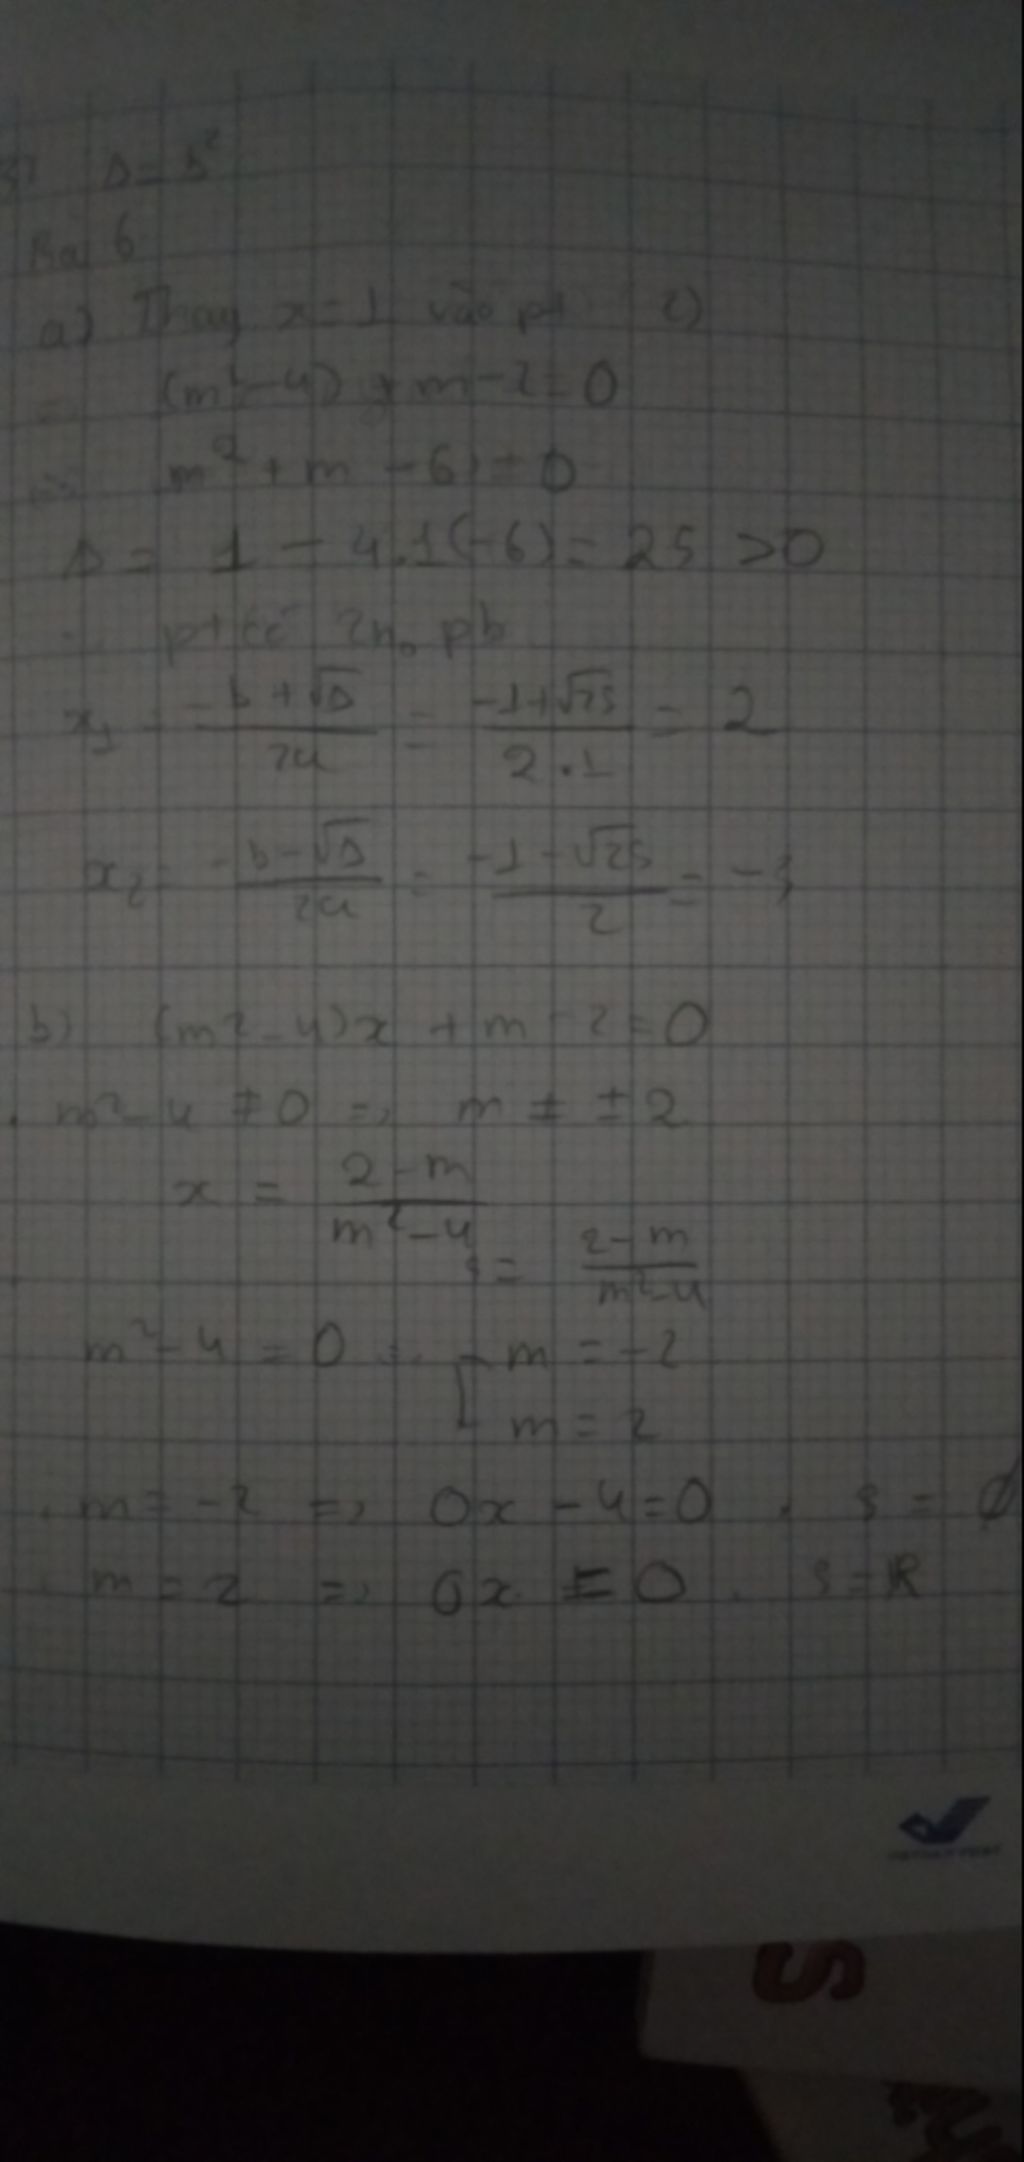 Δ = b²
Bài 6
a) Thay x = 1 vào pt c)
(m² - 4) + m - 2 = 0
=> m² + m - 6 = 0
Δ = 1 - 4.1(-6) = 25 > 0
pt có 2n₀ pb
x₁ = (-b + √Δ)/2a = (-1 + √25)/(2.1) = 2
x₂ = (-b - √Δ)/2a = (-1 - √25)/2 = -3
b) (m² - 4)x + m - 2 = 0
. m² - 4 ≠ 0 => m ≠ ± 2
x = (2 - m)/(m² - 4)
S = (2 - m)/(m² - 4)
m² - 4 = 0 => [ m = -2
m = 2
. m = -2 => 0x - 4 = 0 . S = Ø
. m = 2 => 0x = 0 . S = R
S